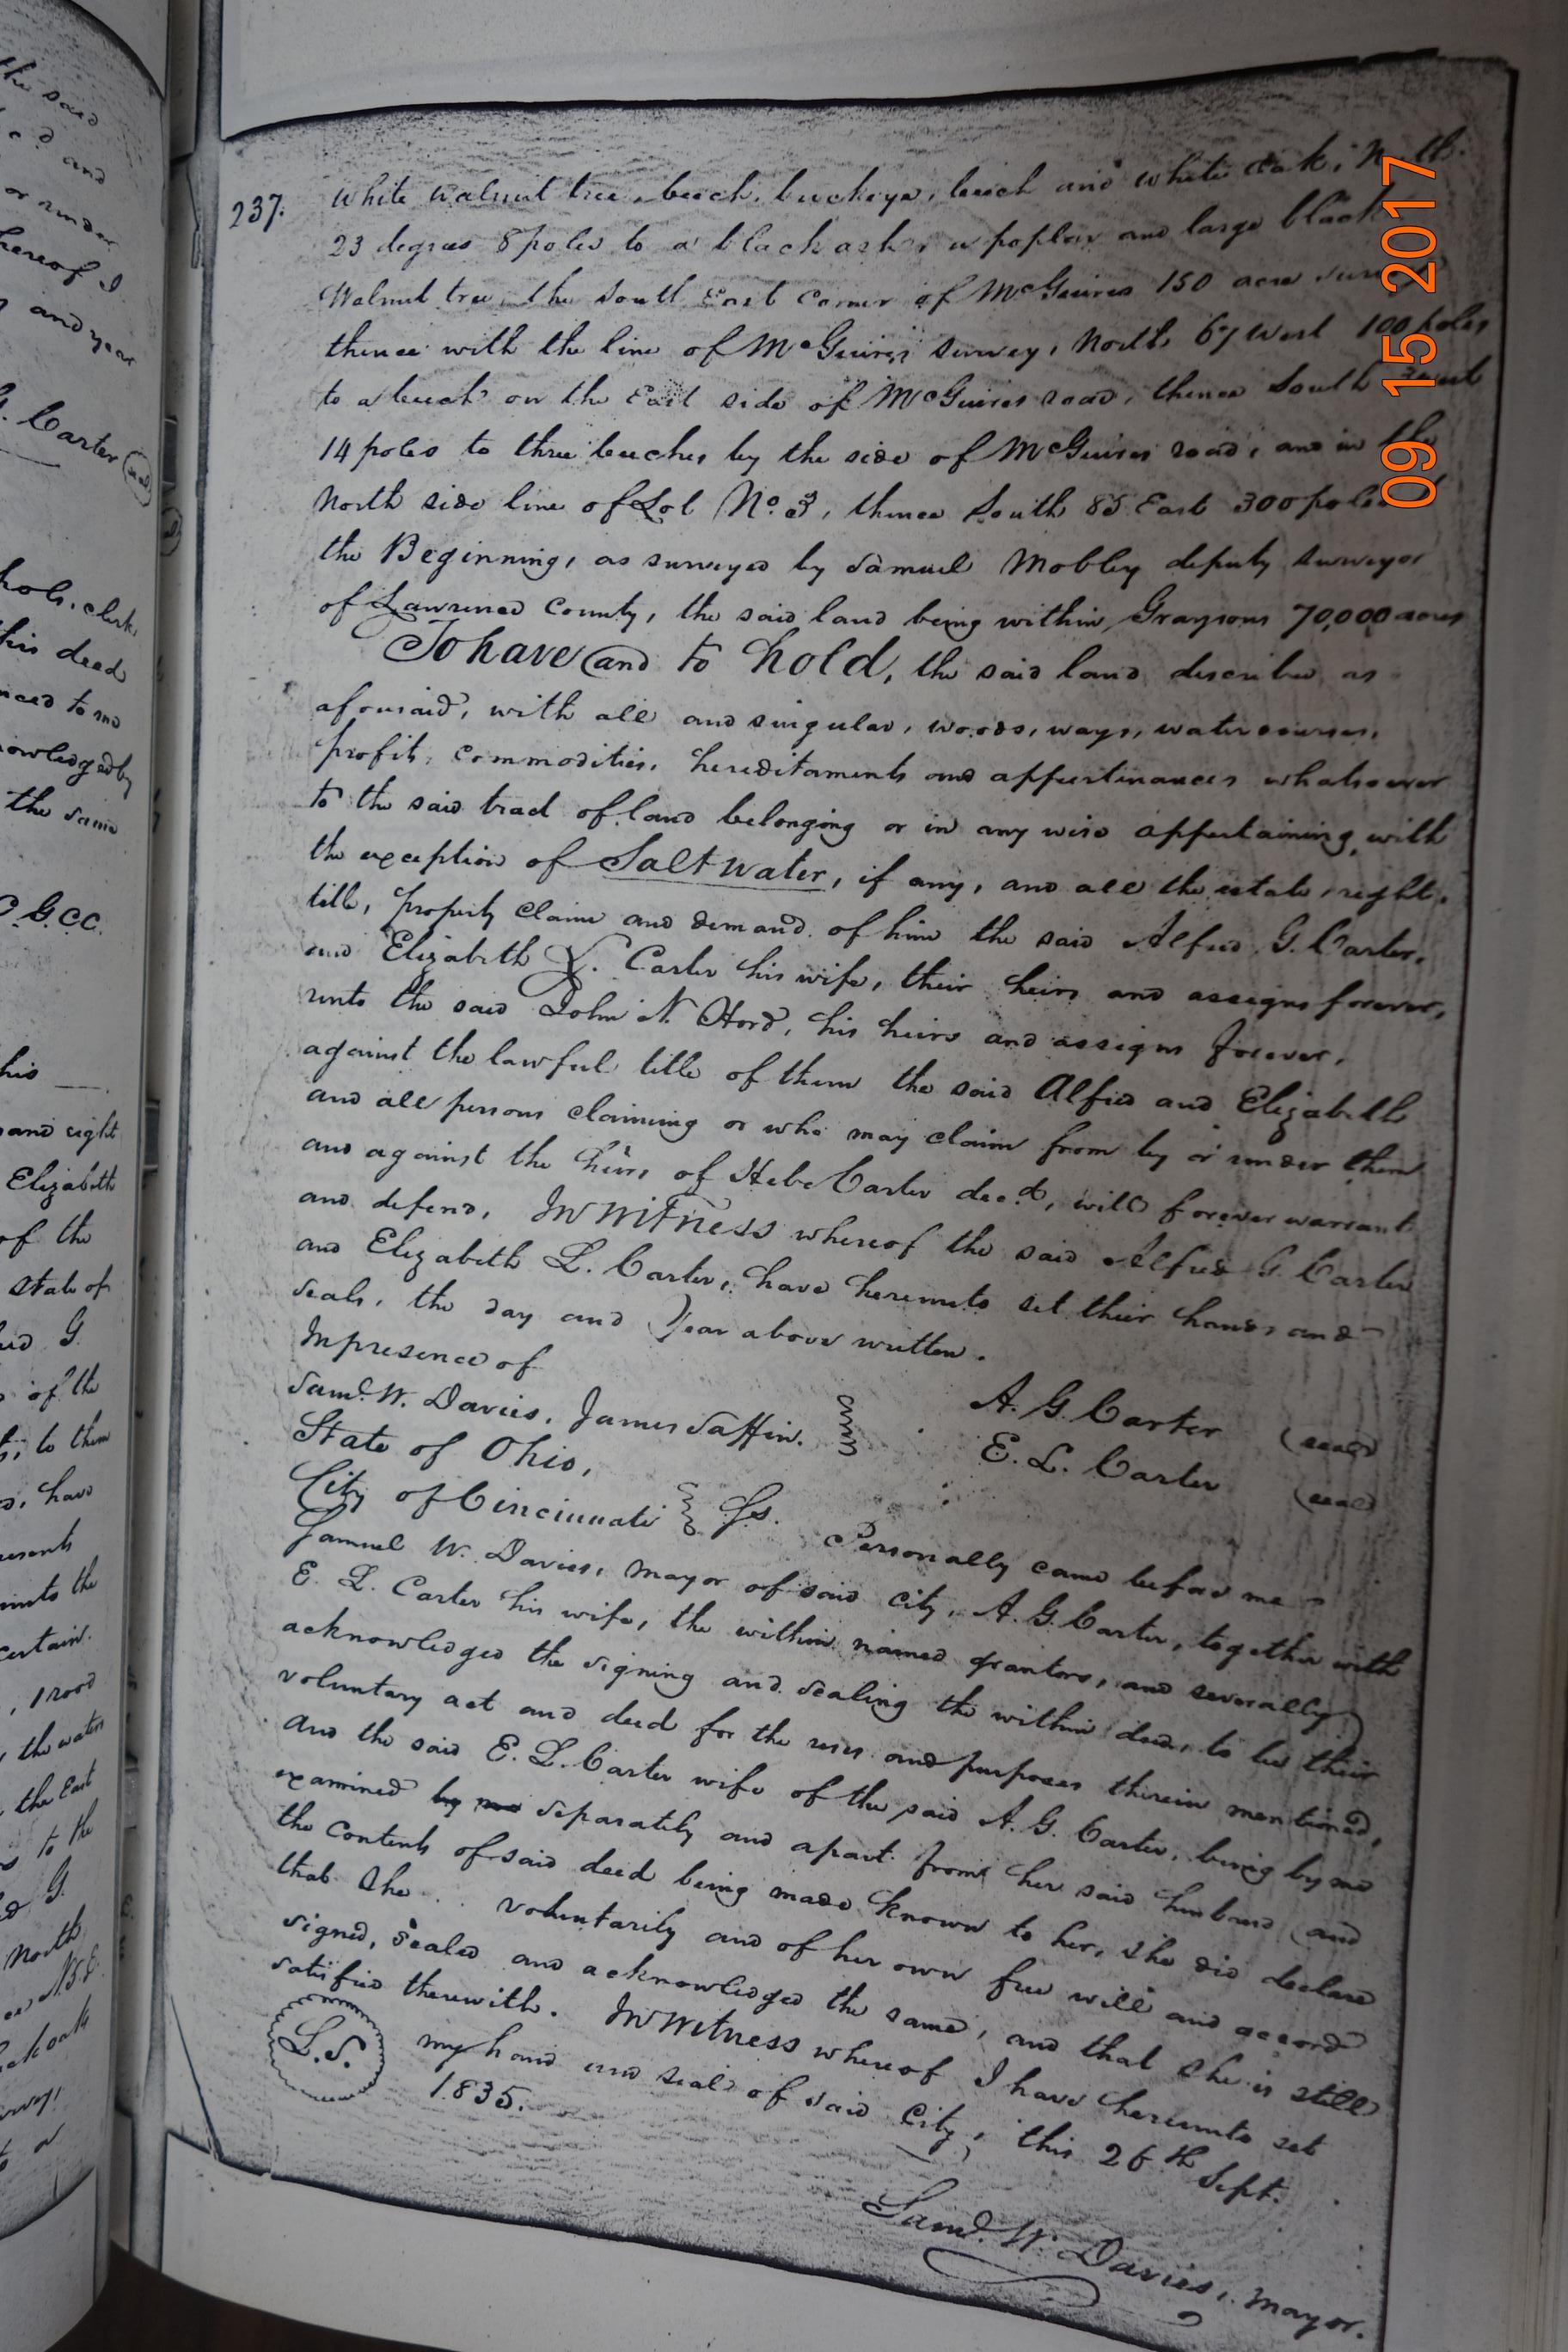 the said
and
or under
hereof I
and year
G. Carter (seal)
clerk
this deed
to me
acknowledged by
the same
C. G.C.C.
his
and right
Elizabeth
of the
State of
G.
of the
to them
have
presents
unto the
certain
1 rood
the waters
the East
to the
G.
North
237.
White Walnut tree, beech, buckeye, beech and white oak, North
23 degrees 8 poles to a black ash, a poplar and large black
Walnut tree, the South East corner of McGuires 150 acre
thence with the line of McGuires survey, North 67 West 100 poles
to a beech on the East side of McGuires road, thence South West
14 poles to three beeches by the side of McGuires road, and in the
North side line of Lot No. 3, thence South 85 East 300 poles
the Beginning, as surveyed by Samuel Mobley deputy surveyor
of Lawrence County, the said land being within Graysons 70,000 acres
To have and to hold, the said land describe as
aforesaid, with all and singular, woods, ways, watercourses,
profits, commodities, hereditaments and appurtinances whatsoever
to the said tract of land belonging or in any wise appertaining, with
the exception of Salt water, if any, and all the estate, right,
title, property claim and demand of him the said Alfred G. Carter,
and Elizabeth L. Carter his wife, their heirs and assigns forever,
unto the said John N. Hord, his heirs and assigns forever,
against the lawful title of them the said Alfred and Elizabeth
and all persons claiming or who may claim from by or under them
and against the heirs of Hebe Carter decd, will forever warrant
and defend, In Witness whereof the said Alfred G. Carter
and Elizabeth L. Carter, have hereunto set their hands and
seals, the day and Year above written.
In presence of
Saml. W. Davies, James Saffin. A. G. Carter (seal)
State of Ohio, E. L. Carter (seal)
City of Cincinnati } Ss. Personally came before me
Samuel W. Davies, Mayor of said city, A. G. Carter, together with
E. L. Carter his wife, the within named grantors, and severally
acknowledged the signing and sealing the within deed, to be their
voluntary act and deed for the uses and purposes therein mentioned,
And the said E. L. Carter wife of the said A. G. Carter, being by me
examined by me separately and apart from her said husband (and
the contents of said deed being made known to her, she did declare
that she voluntarily and of her own free will and accord
signed, sealed and acknowledged the same, and that she is still
satisfied therewith. In Witness whereof I have hereunto set
L.S. my hand and seal of said City, this 26th Sept.
1835.
Saml. W. Davies, Mayor.
09 15 2017